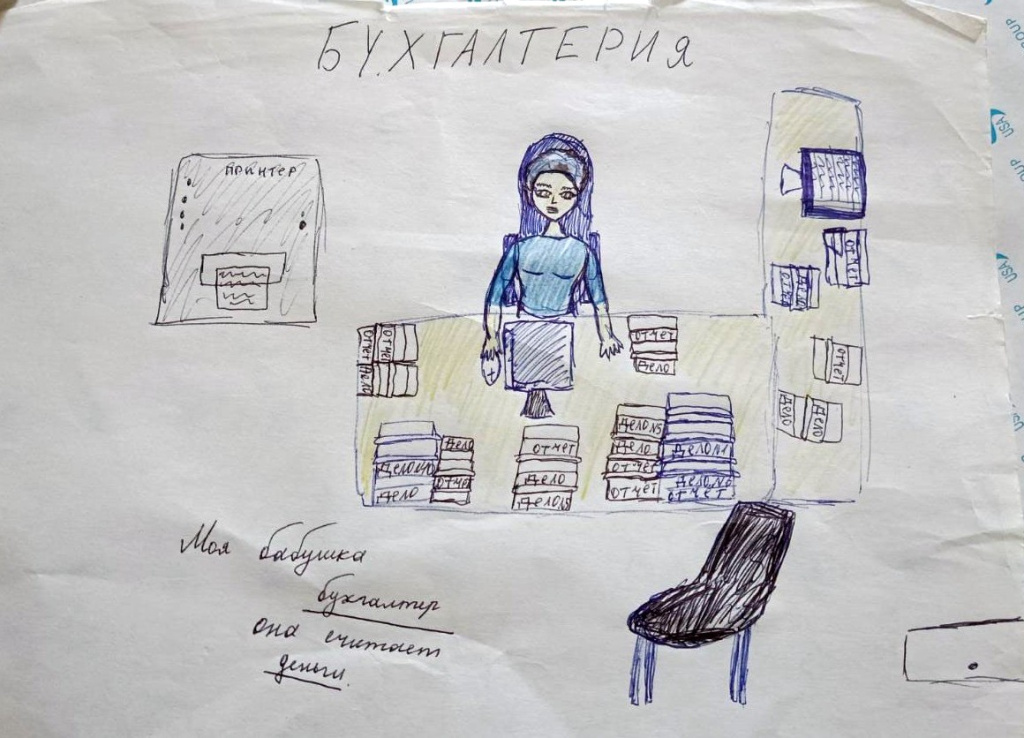 БУХГАЛТЕРИЯ
ПРИНТЕР
ОТЧЕТ
ОТЧЕТ
ДЕЛО
ОТЧЕТ
ДЕЛО
ДЕЛО
ДЕЛО
ОТЧЕТ
ОТЧЕТ
ДЕЛО
ДЕЛО
ДЕЛО №5
ДЕЛО
ОТЧЕТ
ОТЧЕТ
ДЕЛО №1
ОТЧЕТ
ОТЧЕТ
ОТЧЕТ
ДЕЛО
ДЕЛО
Моя бабушка
бухгалтер
она считает
деньги.
USA
USA
USA